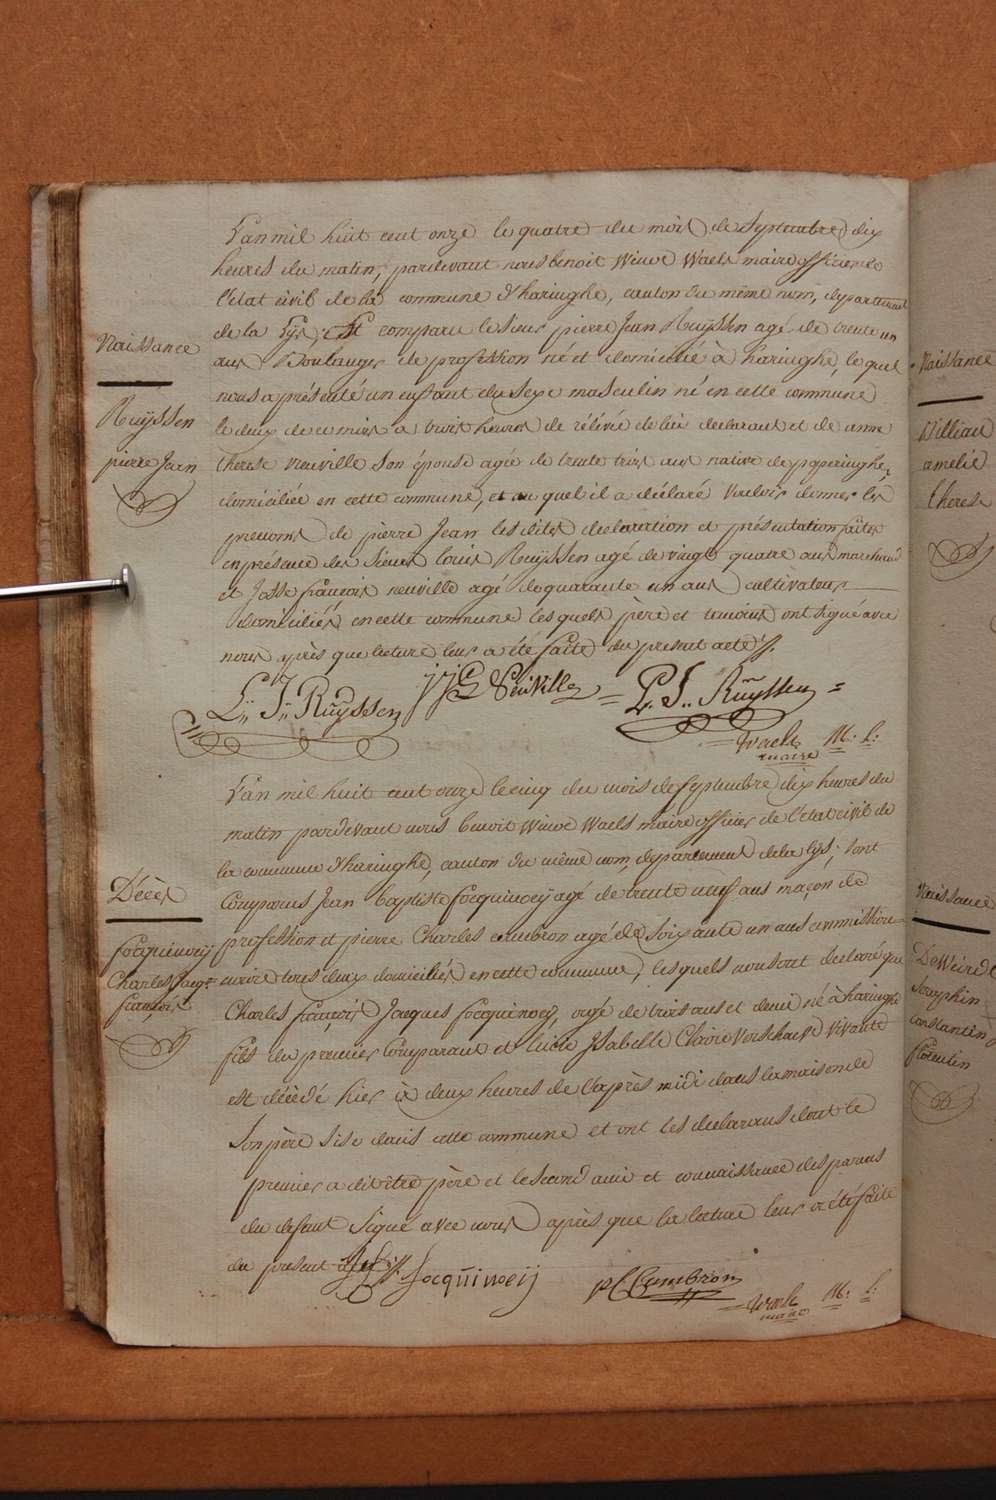 Naissance
Ruÿssen
pierre Jean
L'an mil huit cent onze le quatre du mois de Septembre dix
heures du matin, pardevant nous benoit Winoc Waels maire officier de
l'état civil de la commune d'haringhe, canton du même nom, departement
de la Lÿs, Est comparu le Sieur pierre Jean Ruÿssen agé de trente un
ans Boulanger de profession né et domicilié à haringhe, le quel
nous a présenté un enfant du Sexe masculin né en cette commune
le deux de ce mois a trois heures de rélévée de lui declarant et de anne
therese neuville Son épouse agée de trente trois ans native de poperinghe,
domiciliée en cette commune, et au quel il a déclaré vouloir donner les
prenoms de pierre Jean les dites declaration et présentation faites
en présence des Sieurs louis Ruÿssen agé de vingt quatre ans marchand
et Josse françois neuville agé de quarante un ans cultivateur
domiciliés en cette commune les quels père et temoins ont Signé avec
nous après que lecture leur a été faite du present acte ./.
L: J: Ruÿssen J J f Neuville = P. J.. Ruÿssen =
Waels M. h:
maire
Décès
focquinoeÿ
Charles Jacqs
françois
L'an mil huit cent onze le cinq du mois de Septembre dix heures du
matin pardevant nous benoit Winoc Waels maire officier de l'état civil de
la commune d'haringhe, canton du même nom, departement de la lÿs, sont
Comparus Jean baptiste focquinoeÿ agé de trente neuf ans maçon de
profession et pierre Charles cambron agé de Soixante un ans commission-
naire tous deux domiciliés en cette commune, les quels nous ont declaré que
Charles françois Jacques focquinoeÿ, agé de trois ans et demi né à haringhe
fils du premier Comparant et lucie Isabelle Claire Verschaeve Vivante
est décédé hier à deux heures de l'après midi dans la maison de
Son père Sise dans cette commune et ont les declarans dont le
premier a dit être père et le second ami et connaissance des parans
du defunt Signé avec nous après que la lecture leur a été faite
du present acte ./. focquinoeij p C Cambron
Waels M. h:
maire
Naissance
Willian
amelie
therese
Naissance
DeWeird
Seraphin
constantin
florentin